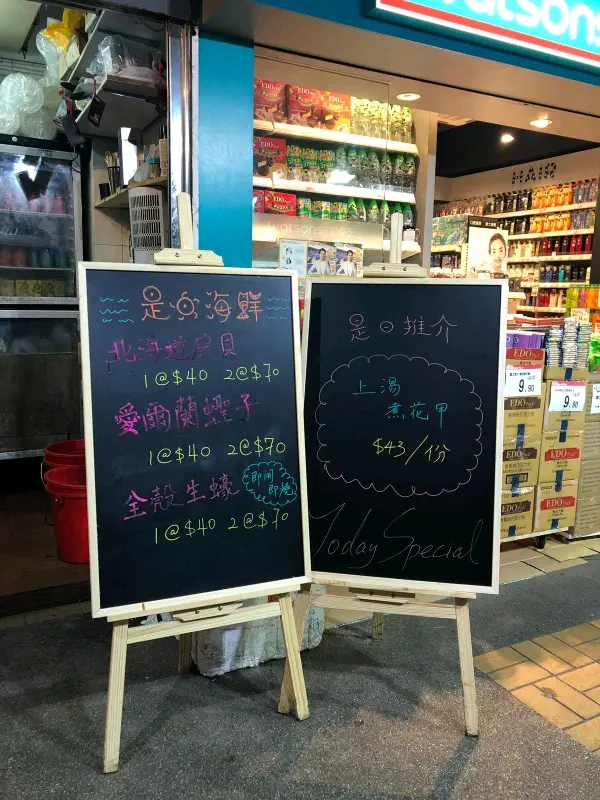 watsons
HAIR
EDO
EDO
EDO
watsons
是日海鮮
北海道扇貝
1@$40 2@$70
愛爾蘭蟶子
1@$40 2@$70
全殼生蠔
即開
即燒
1@$40 2@$70
是日推介
上湯
煮花甲
$43/份
Today Special
EDO Pack
9.90
9.90
EDO Pack
EDO Pack